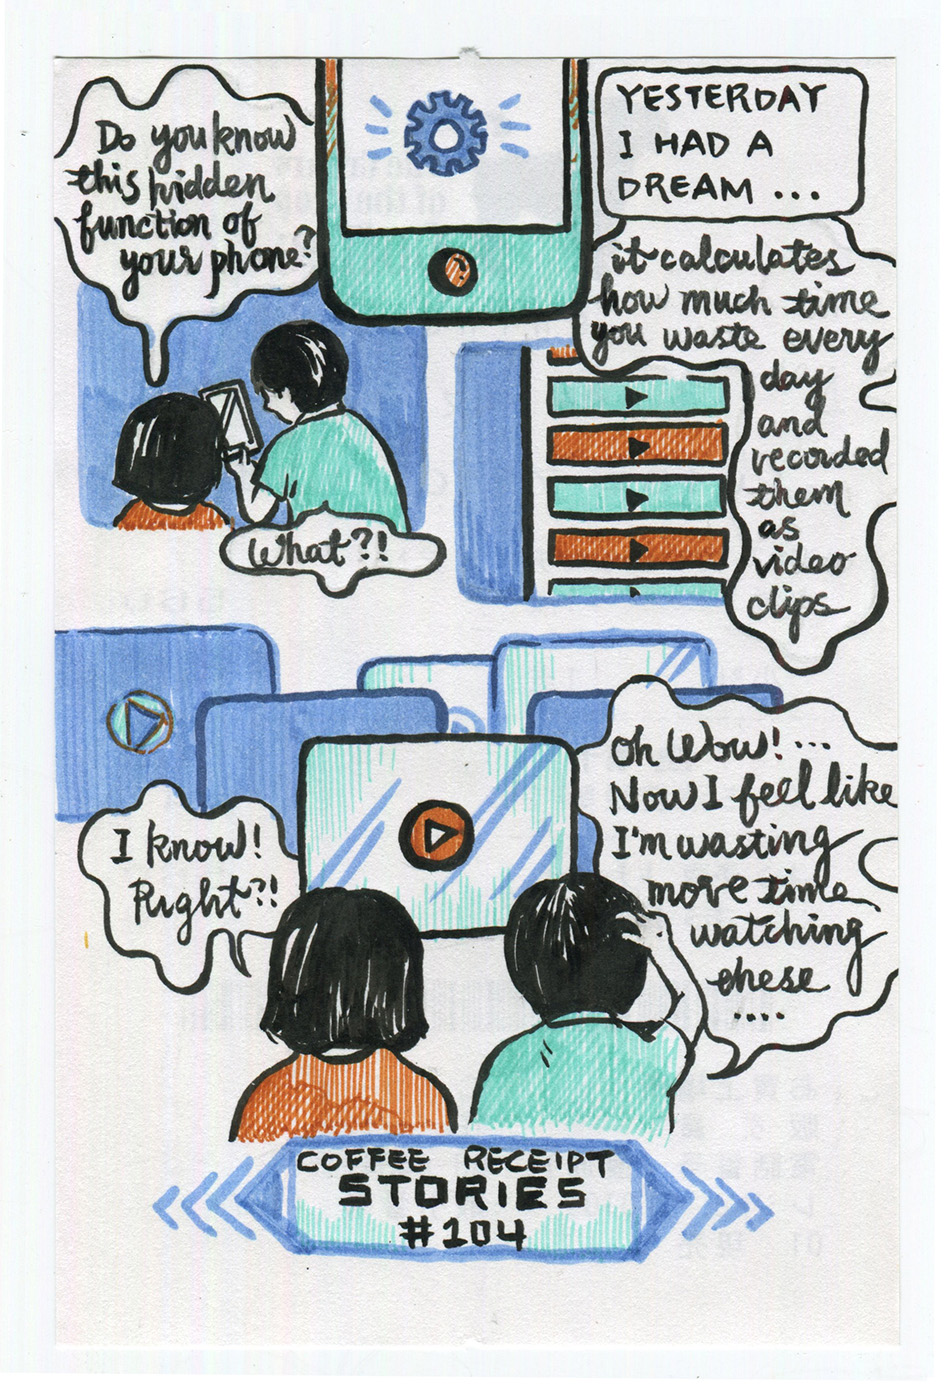 YESTERDAY
I HAD A
DREAM ...
Do you know
this hidden
function of
your phone?
it calculates
how much time
you waste every
day
and
recorded
them
as
video
clips
What?!
I know!
Right?!
Oh Wow! ...
Now I feel like
I'm wasting
more time
watching
these
....
COFFEE RECEIPT
STORIES
#104